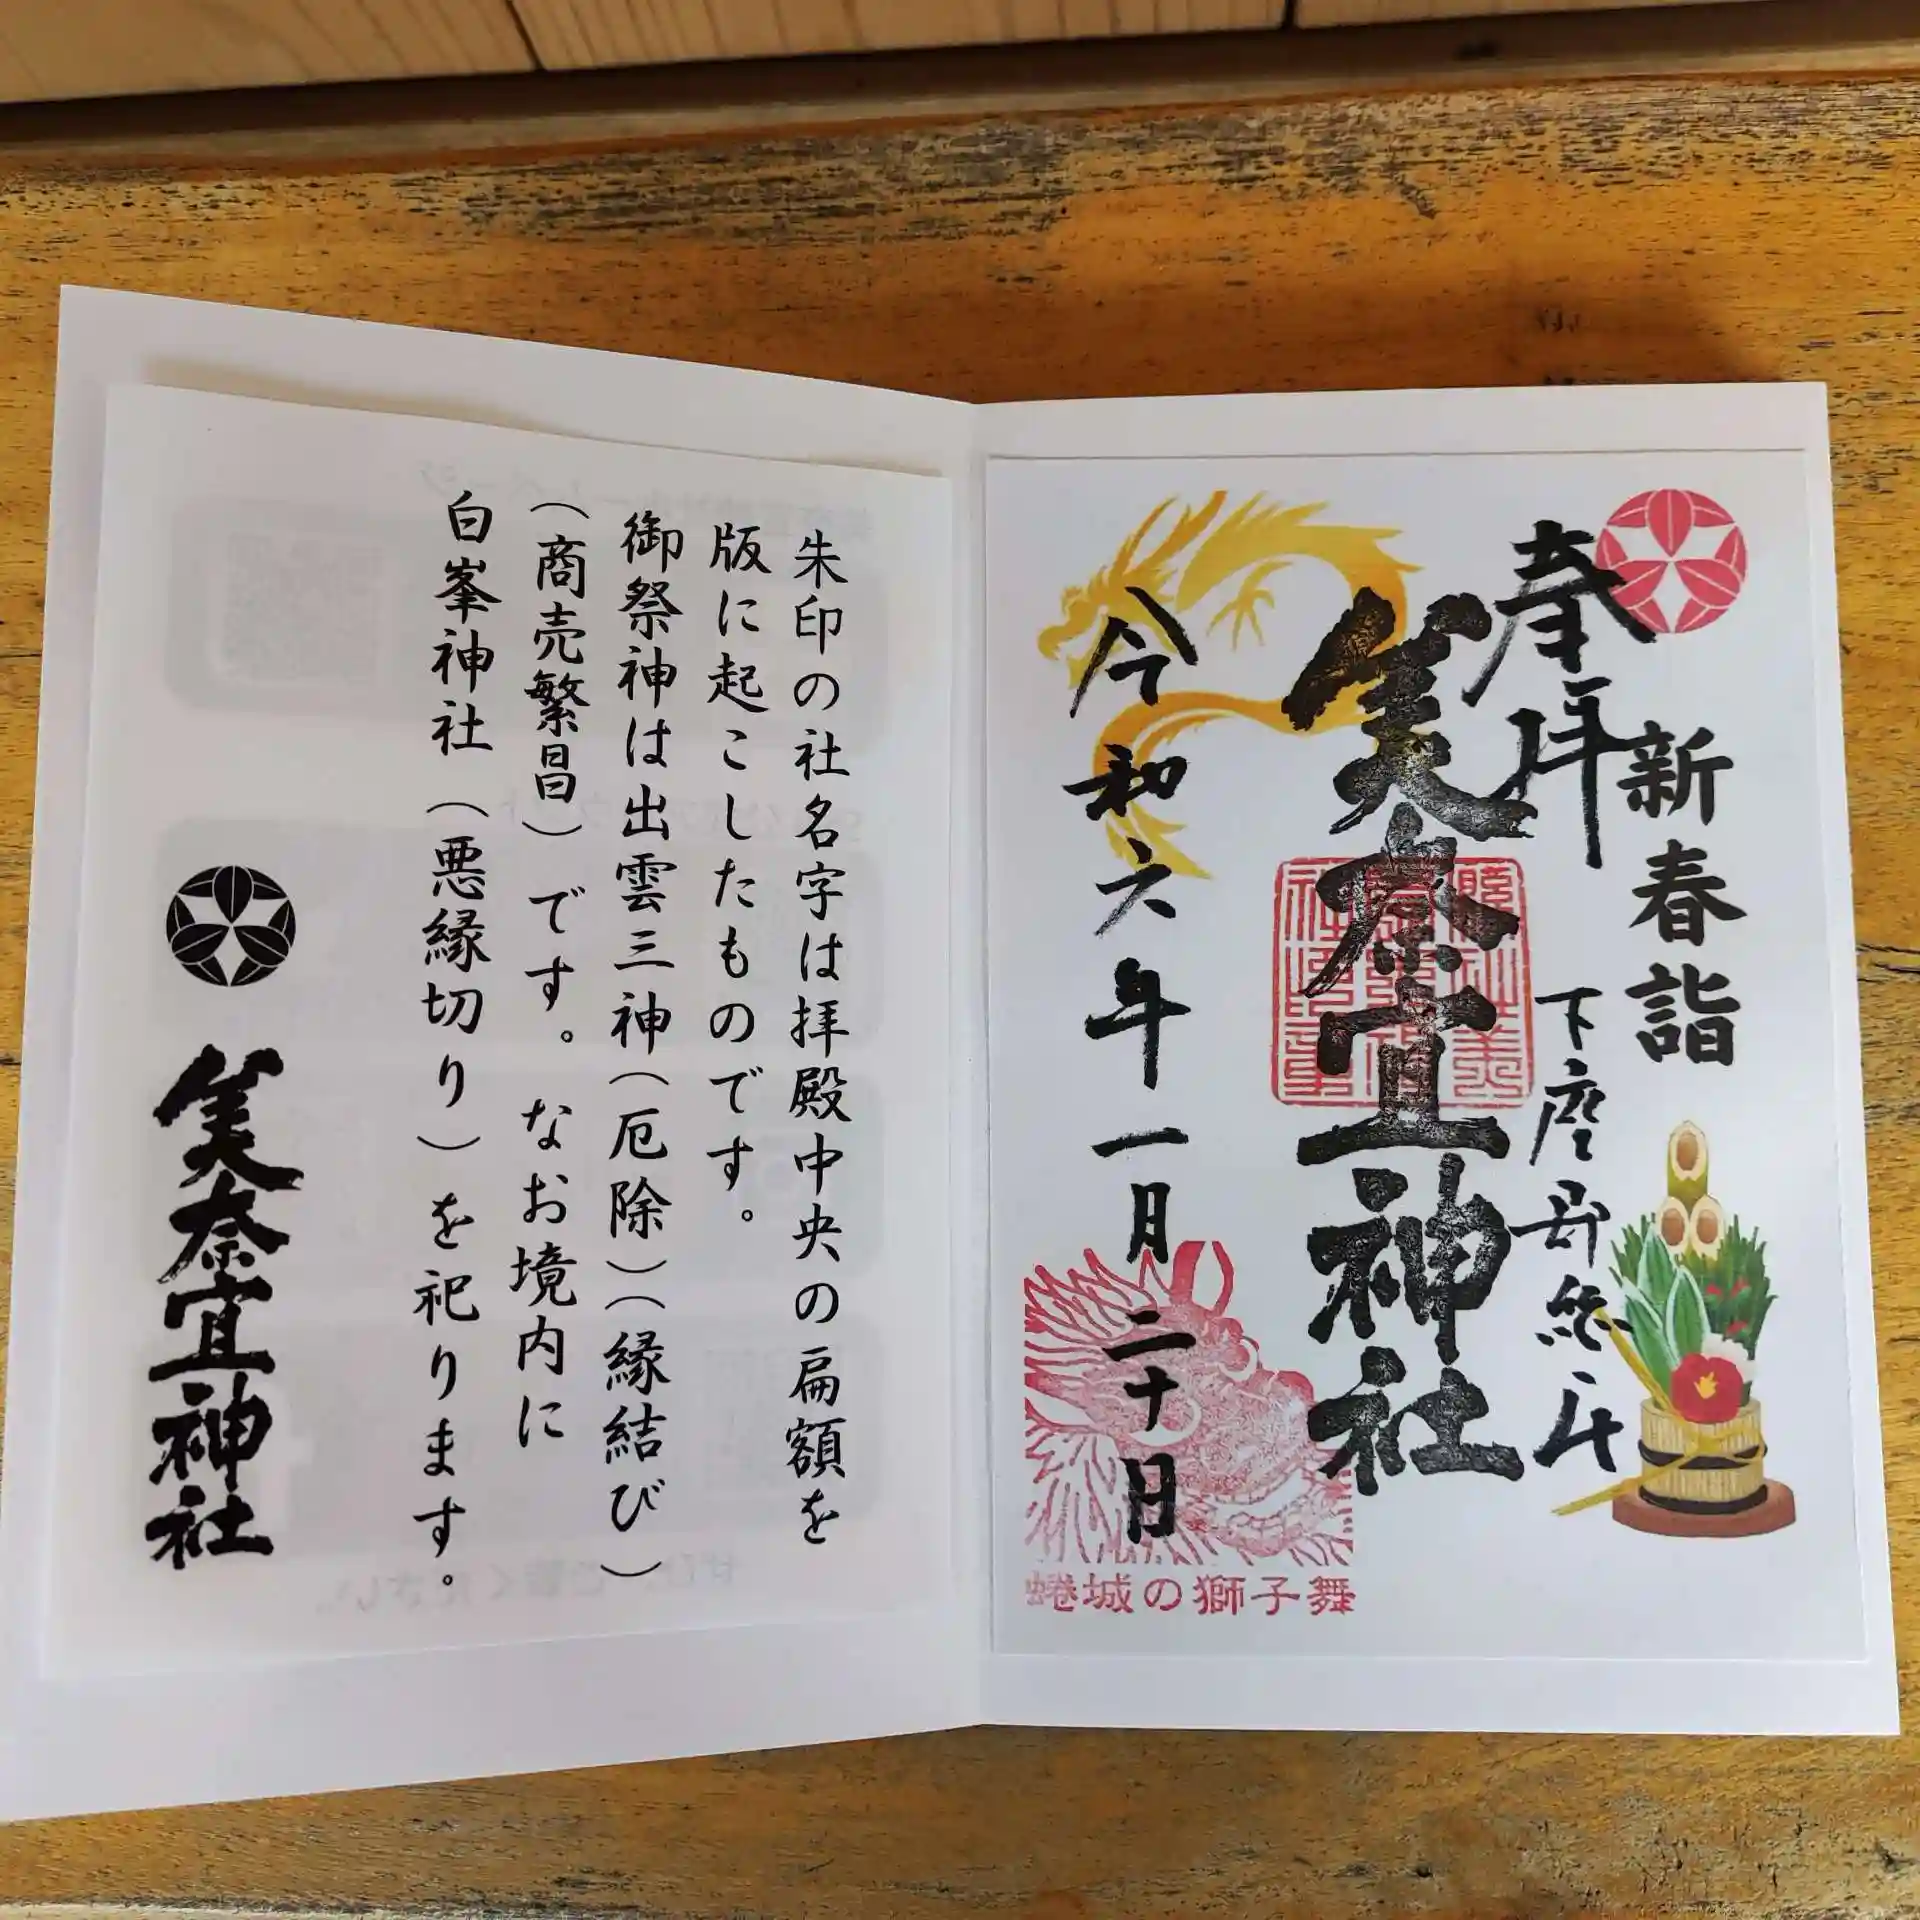 奉拝
新春詣
下座郡総社
美奈宜神社
令和六年一月二十日
蜷城の獅子舞
朱印の社名字は拝殿中央の扁額を
版に起こしたものです。
御祭神は出雲三神(厄除)(縁結び)
(商売繁昌)です。なお境内に
白峯神社(悪縁切り)を祀ります。
美奈宜神社